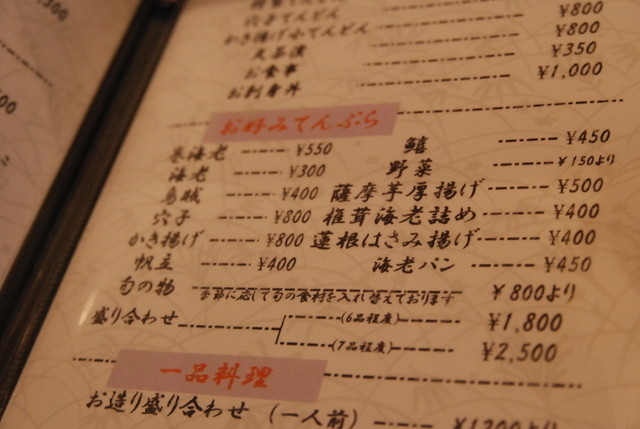 穴子てんどん ¥800
かき揚げ小てんどん ¥800
天茶漬 ¥350
お食事 ¥1,000
お刺身丼
お好みてんぷら
巻海老 ¥550 鱚 ¥450
海老 ¥300 野菜 ¥150より
烏賊 ¥400 薩摩芋厚揚げ ¥500
穴子 ¥800 椎茸海老詰め ¥400
かき揚げ ¥800 蓮根はさみ揚げ ¥400
帆立 ¥400 海老パン ¥450
旬の物 季節に応じて旬の食材を入れ替えております ¥800より
盛り合わせ (6品程度) ¥1,800
(7品程度) ¥2,500
一品料理
お造り盛り合わせ (一人前) ¥1200より